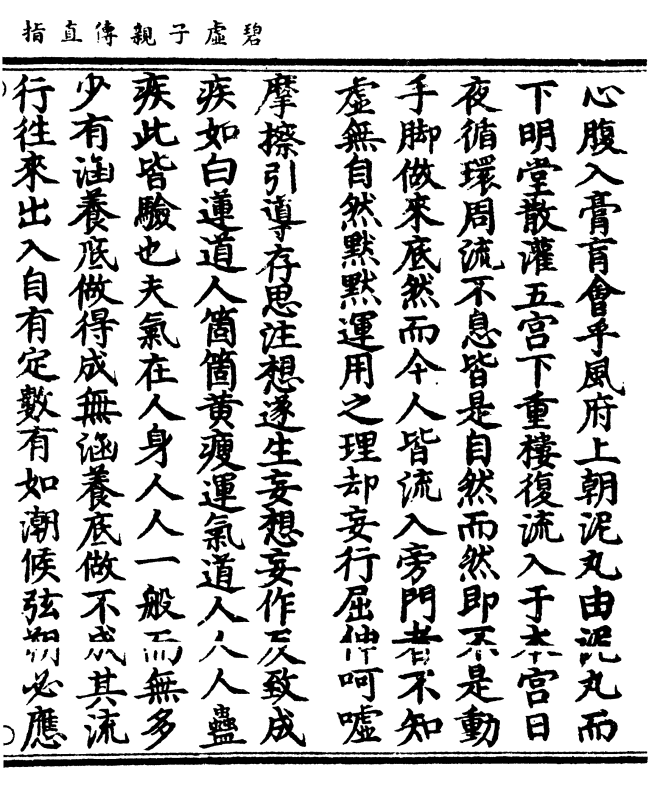 碧虛子親傳直指
心腹入膏肓會乎風府上朝泥丸由泥丸而
下明堂散灌五宮下重樓復流入于本宮日
夜循環周流不息皆是自然而然即不是動
手脚做來底然而今人皆流入旁門者不知
虛無自然默默運用之理却妄行屈伸呵噓
摩擦引導存思注想遂生妄想妄作反致成
疾如白蓮道人箇箇黃瘦運氣道人人人蠱
疾此皆驗也夫氣在人身人人一般而無多
少有涵養底做得成無涵養底做不成其流
行往來出入自有定數有如潮候弦朔必應